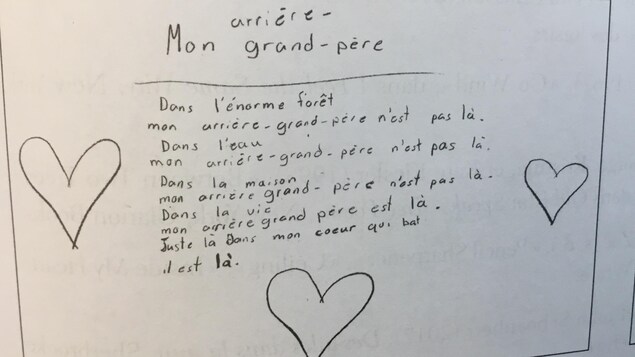 arrière-
Mon grand-père
Dans l'énorme forêt
mon arrière-grand-père n'est pas là.
Dans l'eau
mon arrière-grand-père n'est pas là.
Dans la maison
mon arrière grand-père n'est pas là.
Dans la vie
mon arrière grand père est là.
Juste là Dans mon coeur qui bat
il est là.